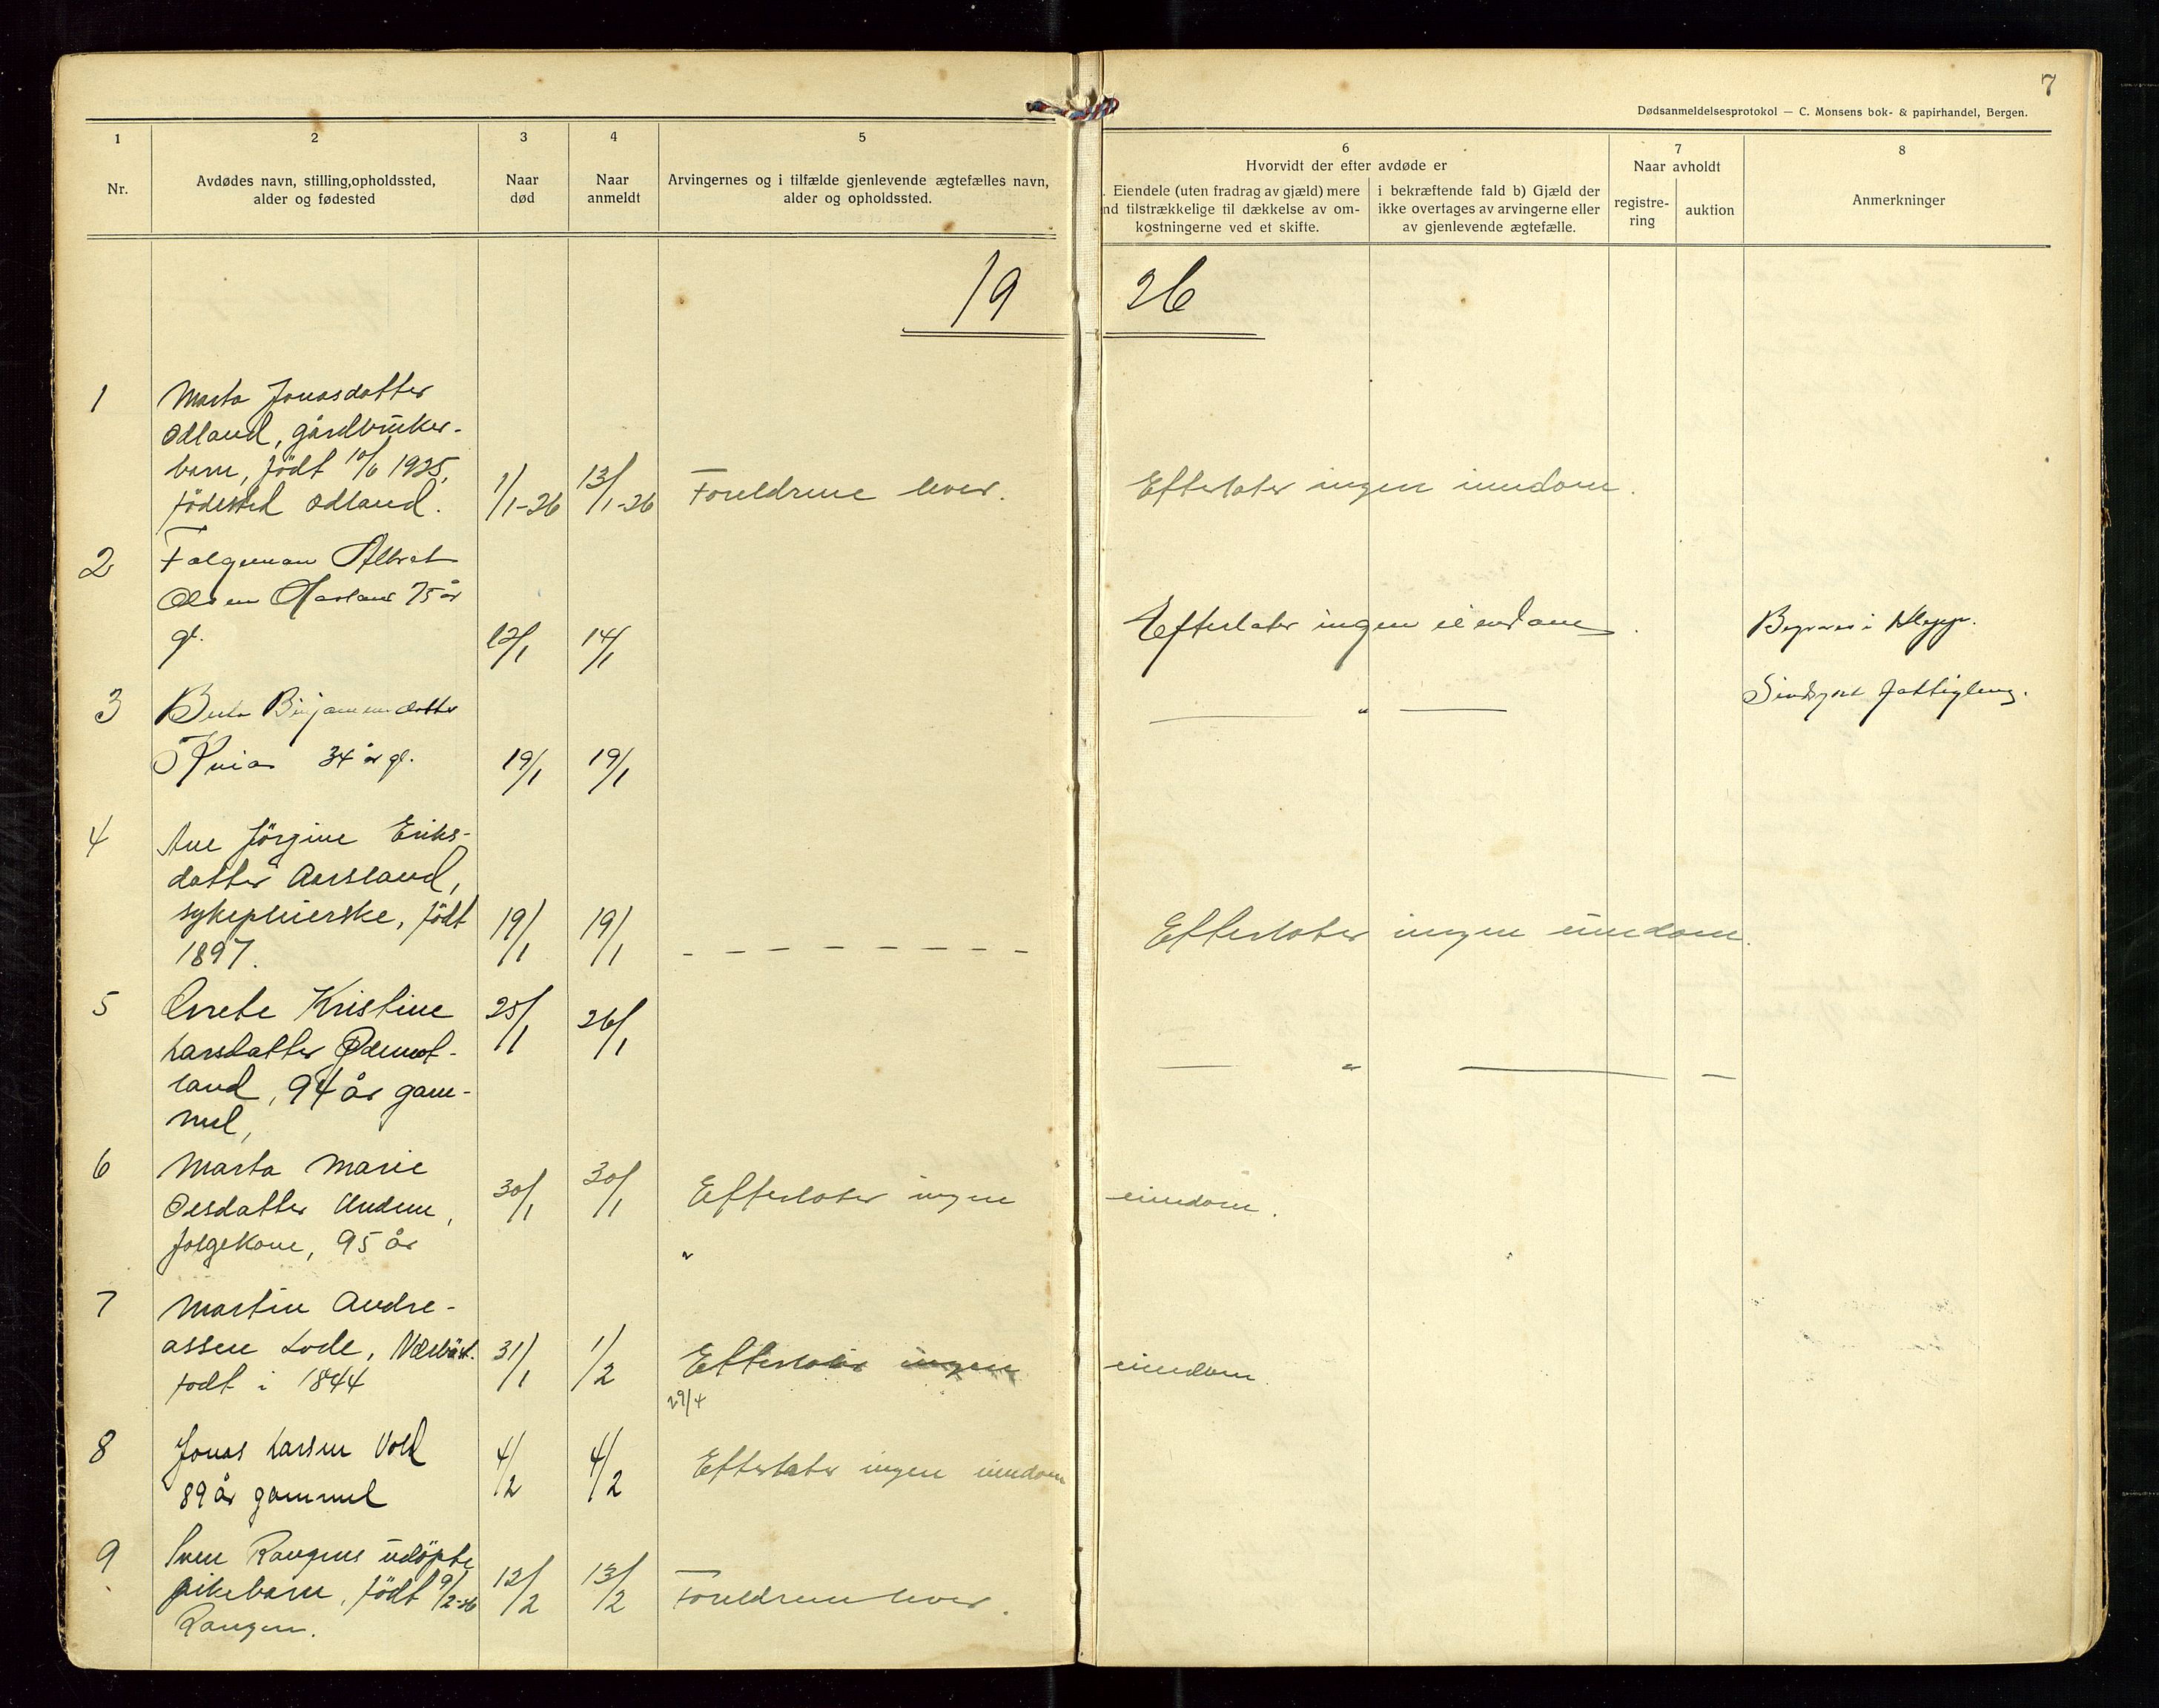 7
Dødsanmeldelsesprotokol — C. Monsens bok- & papirhandel, Bergen.
1
Nr.
2
Avdødes navn, stilling,opholdssted,
alder og fødested
3
Naar
død
4
Naar
anmeldt
5
Arvingernes og i tilfælde gjenlevende ægtefælles navn,
alder og opholdssted.
6
Hvorvidt der efter avdøde er
. Eiendele (uten fradrag av gjæld) mere
nd tilstrækkelige til dækkelse av om-
kostningerne ved et skifte.
i bekræftende fald b) Gjæld der
ikke overtages av arvingerne eller
av gjenlevende ægtefælle.
7
Naar avholdt
registre-
ring
auktion
8
Anmerkninger
19 26
1
Marta Jonasdatter
Odland, gårdbruker-
barn, födt 10/6 1925,
födested Odland.
1/1-26
13/1-26
Foreldrene lever.
Efterlater ingen eiendom.
2
Folgeman Albret
Olsen Aarland 75 år
gl.
12/1
14/1
Efterlater ingen eiendom.
Begraves i Klepp.
3
Berta Binjaminsdatter
Kvia 34 år gl.
19/1
19/1
— " —
Sindssyk fattiglem.
4
Ane Jörgine Eriks-
datter Aarsland,
sykepleierske, födt
1897.
19/1
19/1
- - - - - - - -
Efterlater ingen eiendom.
5
Grete Kristine
Larsdatter Ødemot-
land, 94 år gam-
mel,
25/1
26/1
— " — —
6
Marta Marie
Olsdatter Undem,
folgekone, 95 år
30/1
30/1
Efterlater ingen eiendom.
"
7
Martin Andre-
assen Lode, Nærbö.
födt i 1844
31/1
1/2
Efterlater ingen eiendom
29/4
8
Jonas Larsen Vold
89 år gammel
4/2
4/2
Efterlater ingen eiendom
9
Sven Raugens udöpte
pikebarn, födt 9/2-26
Raugen.
12/2
13/2
Foreldrene lever.